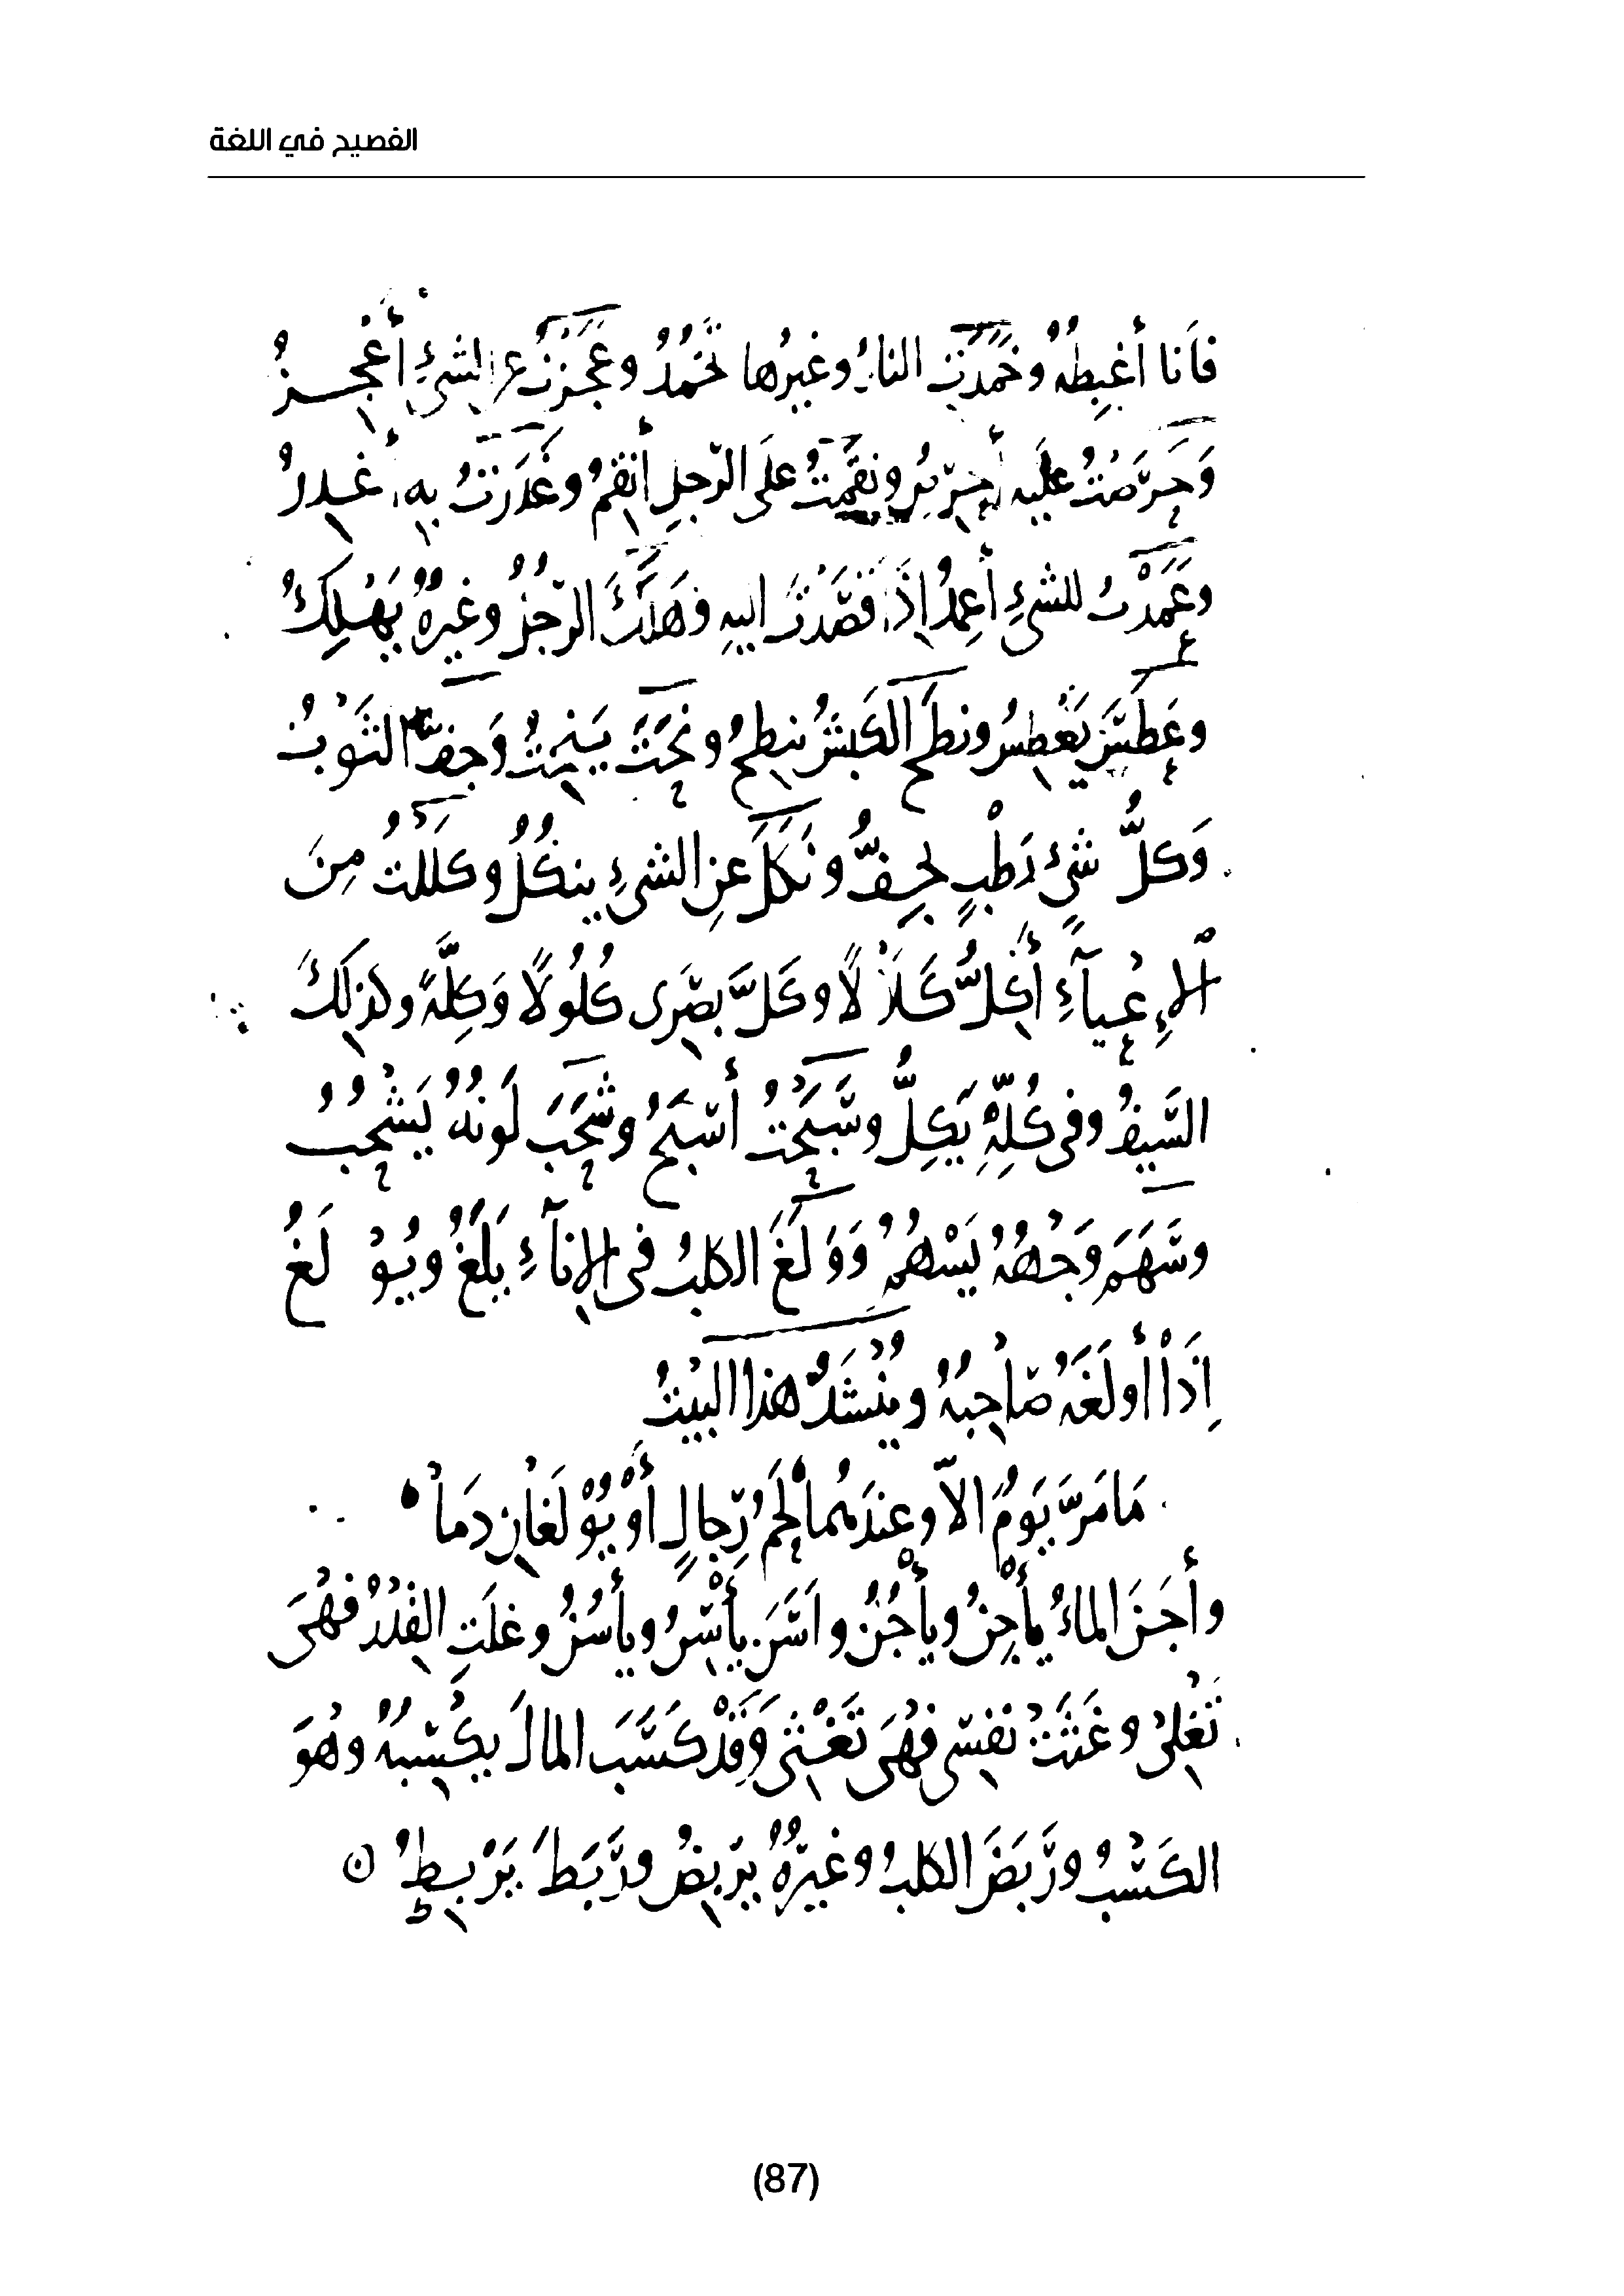 الفصيح في اللغة
فَأنا أَغْبِطُهُ وخَمَدَتِ النارُ وغيرُها تَخْمُدُ وعَجَزْتُ عن الشيءِ أَعْجِزُ
وَحَرَصْتُ عليه أَحْرِصُ ونَقَمْتُ على الرّجلِ أَنْقِمُ وغَدَرْتُ بِهِ أَغْدِرُ
وعَمَدْتُ للشيءِ أَعمِدُ إذا قَصَدْتَ إليهِ وهَلَكَ الرّجُلُ وغيرُهُ يَهْلِكُ
وعَطَسَ يَعْطِسُ ونطَحَ الكَبشُ ينطِحُ ونَحَتَ يَنحِتُ وَجفَّ الثَّوْبُ
وَكلُّ شيءٍ رَطْبٍ يَجِفُّ ونَكَلَ عنِ الشيءِ ينكُلُ وكلَلْتُ مِنَ
الإِعْيَآءِ أَكِلُّ كَلَالًا وكَلَّ بصَرِى كُلُولًا وَكِلَّةً وكذلِكَ
السَّيفُ وفى كُلِّهِ يَكِلُّ وسَبَحْتُ أَسْبَحُ وشَحَبَ لَونُهُ يَشْحُبُ
وسَهَمَ وَجْهُهُ يَسْهُمُ وَوَلَغَ الكلبُ فى الإناءِ يَلَغُ ويُوْلَغُ
إِذَا أَولَغَهُ صَاحِبُهُ ويُنْشَدُ هذا البَيْتُ
مَا مَرَّ يَومٌ الاّ وعندَهُما لَحْمُ رِجالٍ أَوْ يُوْلَغَانِ دَمَا
وأَجَنَ الماءُ يأْجِنُ ويأْجُنُ وأَسَنَ يأْسِنُ ويأْسُنُ وغلَتِ القِدْرُ فَهْىَ
تَغْلِىْ وغَثَتْ نفسى فهْىَ تَغْثِى وَقَدْ كَسَبَ المالَ يكْسِبُهُ وهُوَ
الكَسْبُ ورَبَضَ الكلبُ وغيرُهُ يَرْبِضُ ورَبَطَ يَرْبِطُ
(87)